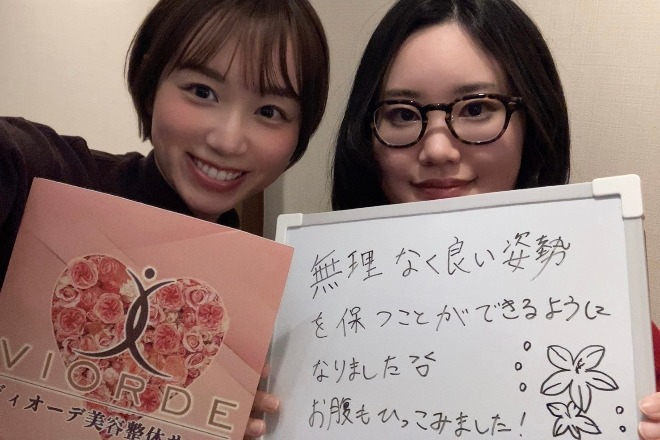 VIORDE
ディオーデ美容整体サ
無理なく良い姿勢
を保つことができるように
なりました
お腹もひっこみました!